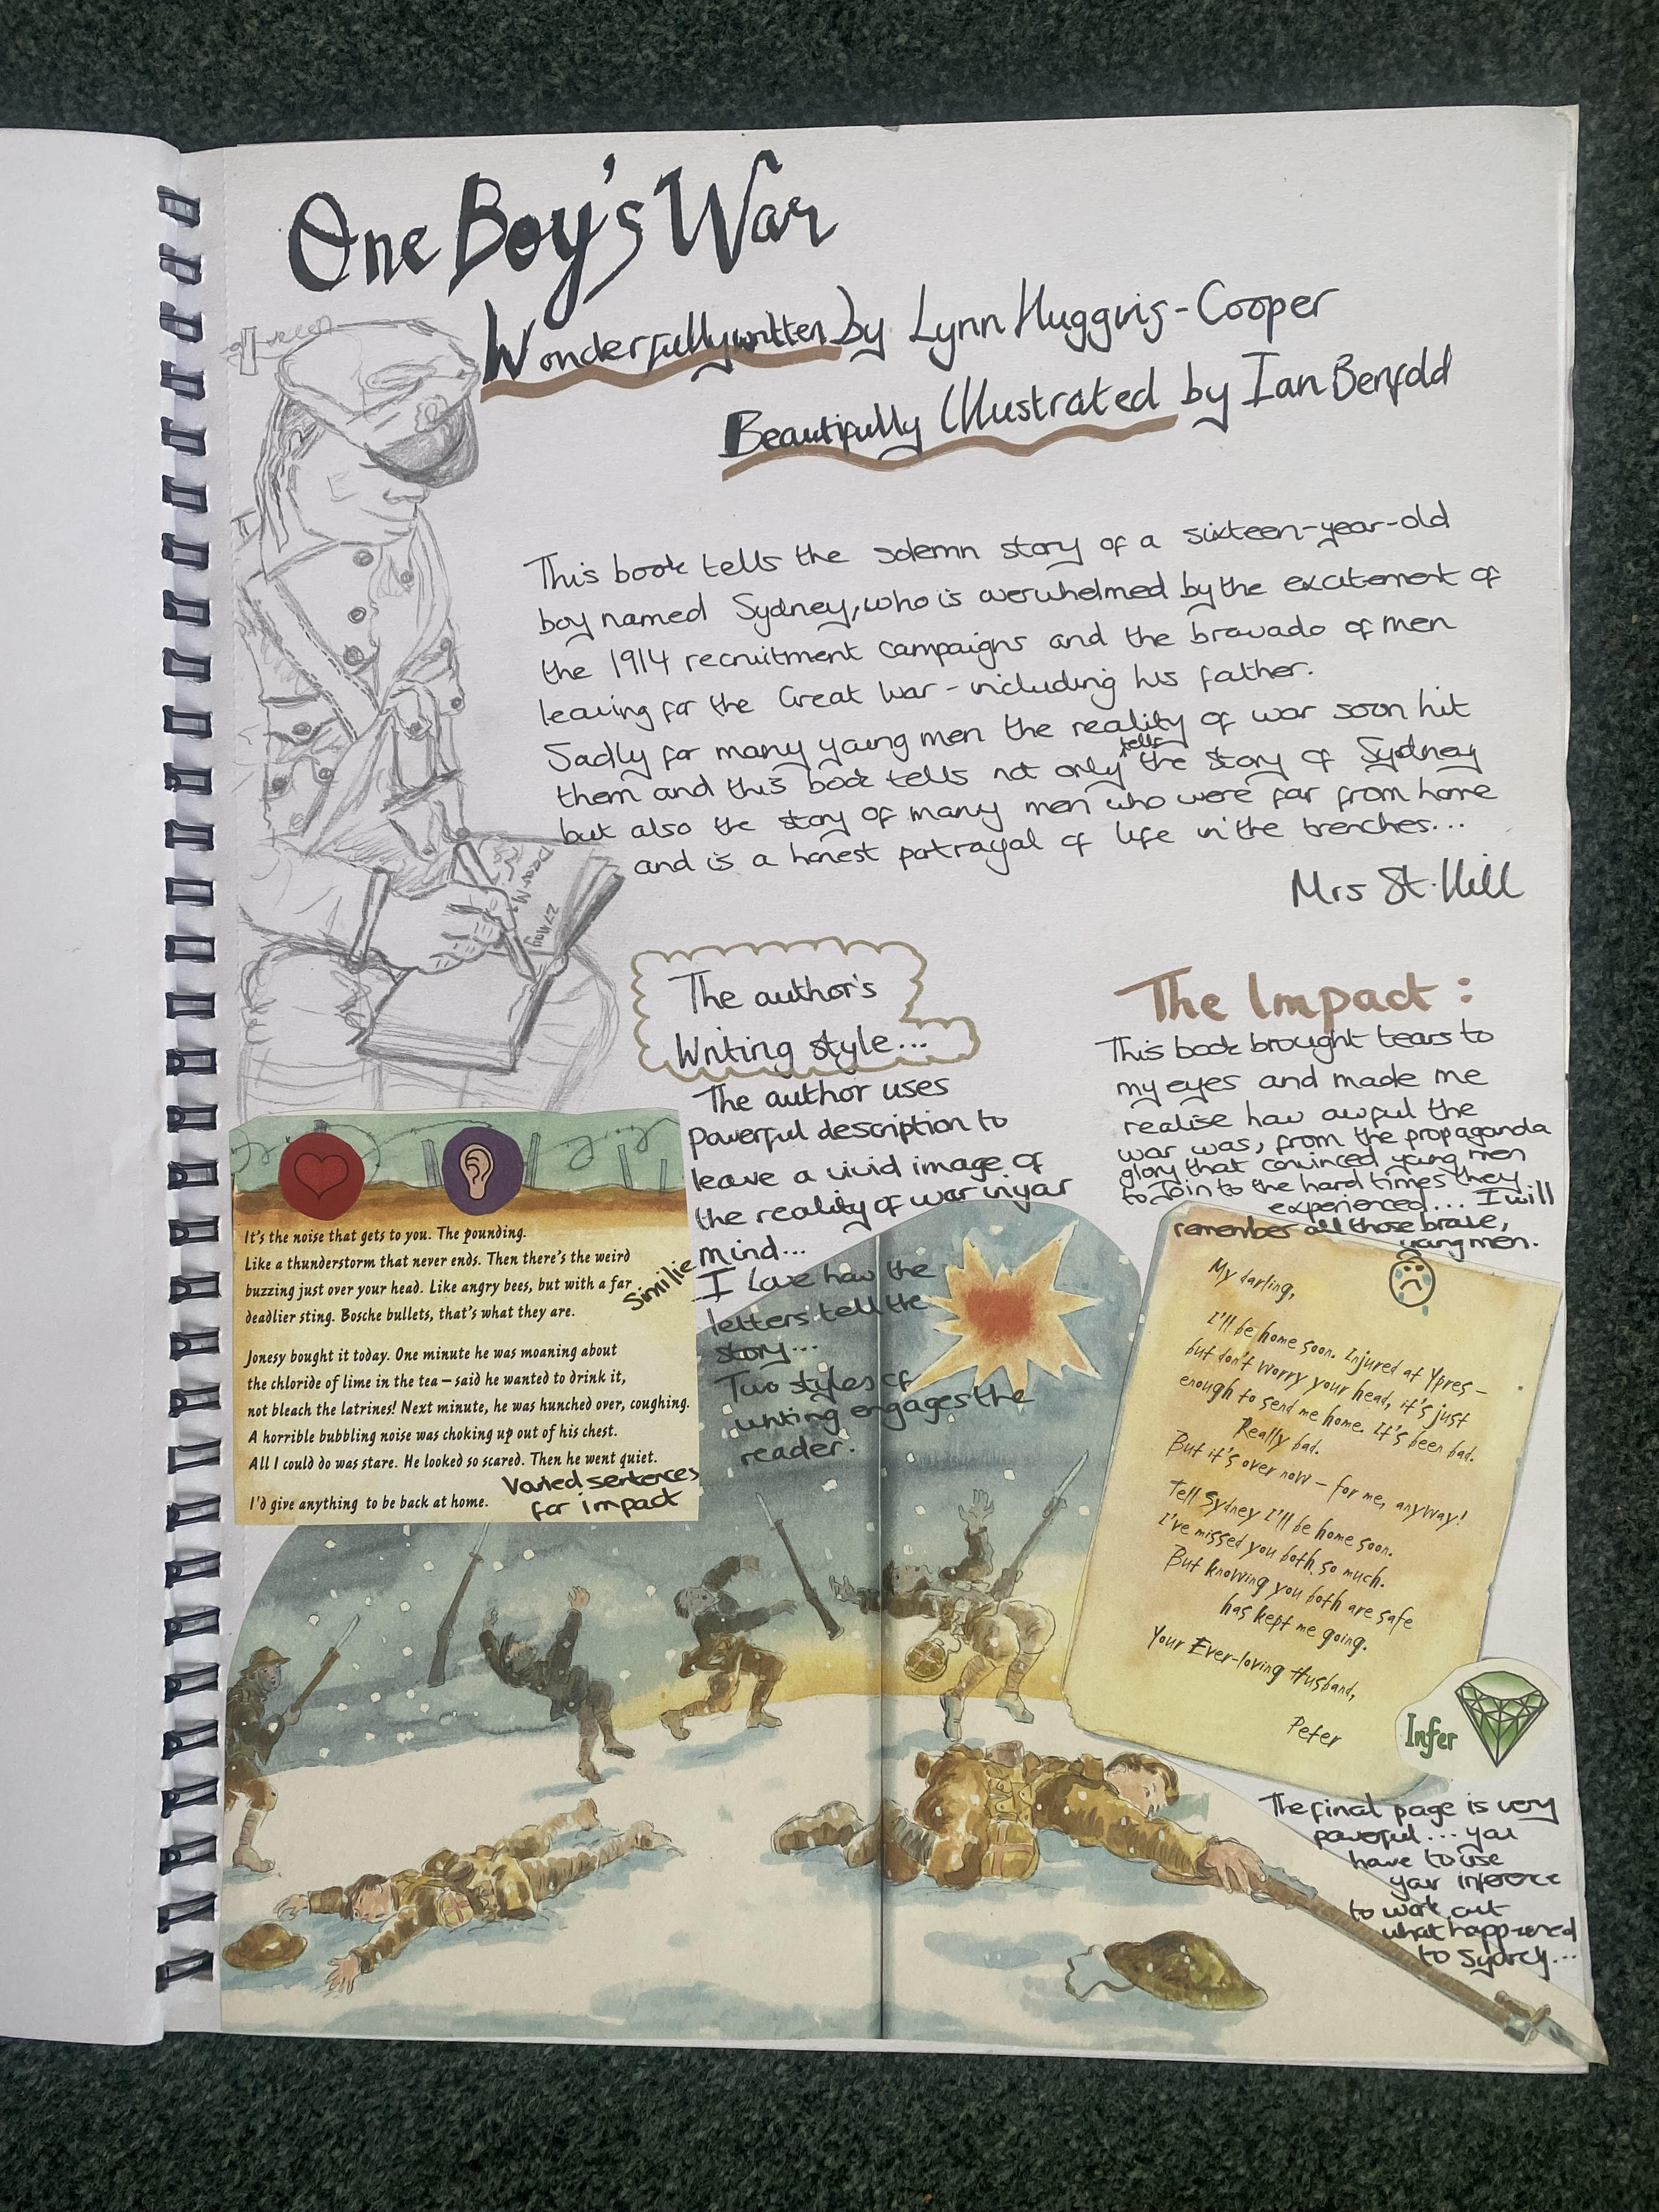 One Boy's War
Wonderfully written by Lynn Huggins-Cooper
Beautifully Illustrated by Ian Benfold
This book tells the solemn story of a sixteen-year-old
boy named Sydney, who is overwhelmed by the excitement of
the 1914 recruitment campaigns and the bravado of men
leaving for the Great War - including his father.
Sadly for many young men the reality of war soon hit
them and this book tells not only tells the story of Sydney
but also the story of many men who were far from home
and is a honest portrayal of life in the trenches...
Mrs St. Hill
Dear M
27 May
The author's
Writing style...
The author uses
powerful description to
leave a vivid image of
the reality of war in your
mind...
I love how the
letters tell the
story...
Two styles of
writing engages the
reader.
The Impact:
This book brought tears to
my eyes and made me
realise how awful the
war was, from the propaganda
glory that convinced young men
to join to the hard times they
experienced... I will
remember all those brave,
young men.
It's the noise that gets to you. The pounding.
Like a thunderstorm that never ends. Then there's the weird
buzzing just over your head. Like angry bees, but with a far
deadlier sting. Bosche bullets, that's what they are.
Similie
Jonesy bought it today. One minute he was moaning about
the chloride of lime in the tea – said he wanted to drink it,
not bleach the latrines! Next minute, he was hunched over, coughing.
A horrible bubbling noise was choking up out of his chest.
All I could do was stare. He looked so scared. Then he went quiet.
I'd give anything to be back at home.
Varied sentences
for impact
My darling,
I'll be home soon. Injured at Ypres –
but don't worry your head, it's just
enough to send me home. It's been bad.
Really bad.
But it's over now – for me, anyway!
Tell Sydney I'll be home soon.
I've missed you both so much.
But knowing you both are safe
has kept me going.
Your Ever-loving Husband,
Peter
Infer
The final page is very
powerful... you
have to use
your inference
to work out
what happened
to Sydney...